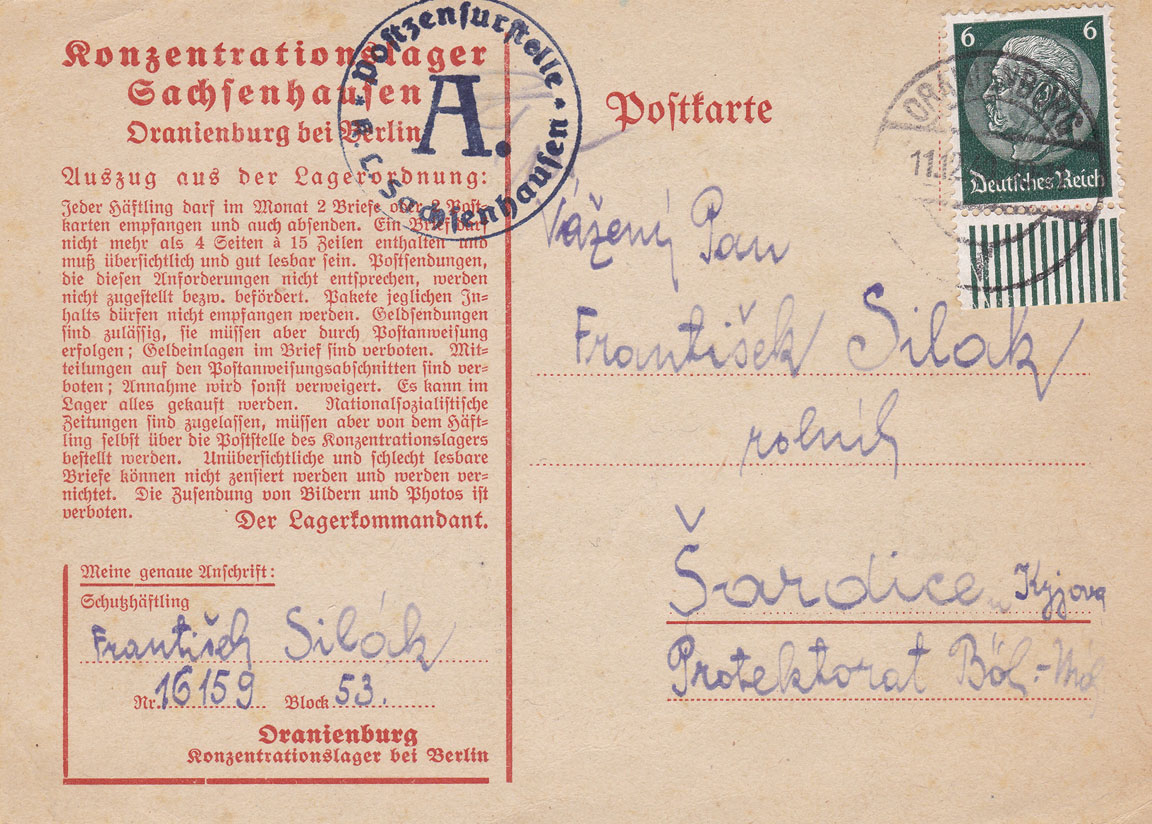 Konzentrationslager
Sachsenhausen
Oranienburg bei Berlin
Auszug aus der Lagerordnung:
Jeder Häftling darf im Monat 2 Briefe oder 2 Post-
karten empfangen und auch absenden. Ein Brief darf
nicht mehr als 4 Seiten à 15 Zeilen enthalten und
muß übersichtlich und gut lesbar sein. Postsendungen,
die diesen Anforderungen nicht entsprechen, werden
nicht zugestellt bezw. befördert. Pakete jeglichen In-
halts dürfen nicht empfangen werden. Geldsendungen
sind zulässig, sie müssen aber durch Postanweisung
erfolgen; Geldeinlagen im Brief sind verboten. Mit-
teilungen auf den Postanweisungsabschnitten sind ver-
boten; Annahme wird sonst verweigert. Es kann im
Lager alles gekauft werden. Nationalsozialistische
Zeitungen sind zugelassen, müssen aber von dem Häft-
ling selbst über die Poststelle des Konzentrationslagers
bestellt werden. Unübersichtliche und schlecht lesbare
Briefe können nicht zensiert werden und werden ver-
nichtet. Die Zusendung von Bildern und Photos ist
verboten.
Der Lagerkommandant.
Meine genaue Anschrift:
Schutzhäftling
František Silák
Nr. 16159 Block 53.
Oranienburg
Konzentrationslager bei Berlin
Postzensurstelle
A.
K. L. Sachsenhausen
Postkarte
6 6
Deutsches Reich
ORANIENBURG
11.12.
Vážený Pan
František Silák
rolník
Šardice u Kyjova
Protektorat Böh.-